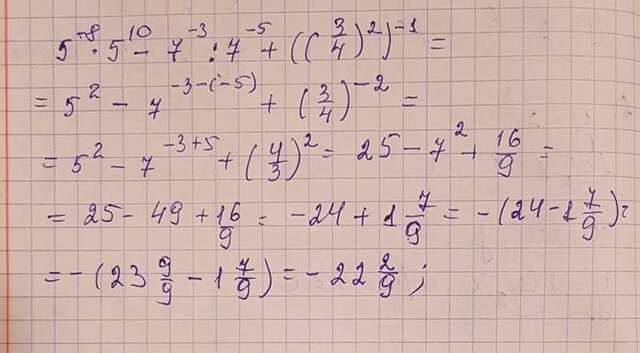 5⁻⁸ · 5¹⁰ - 7⁻³ : 7⁻⁵ + ((3/4)²)⁻¹ =
= 5² - 7⁻³⁻⁽⁻⁵⁾ + (3/4)⁻² =
= 5² - 7⁻³⁺⁵ + (4/3)² = 25 - 7² + 16/9 =
= 25 - 49 + 16/9 = -24 + 1 7/9 = -(24 - 1 7/9) =
= -(23 9/9 - 1 7/9) = -22 2/9 ;